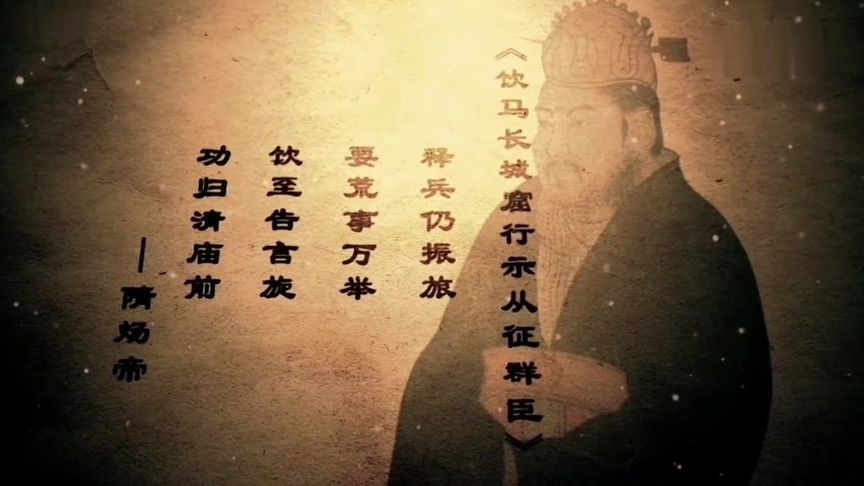 《饮马长城窟行示从征群臣》
释兵仍振旅
要荒事万举
饮至告言旋
功归清庙前
—隋炀帝